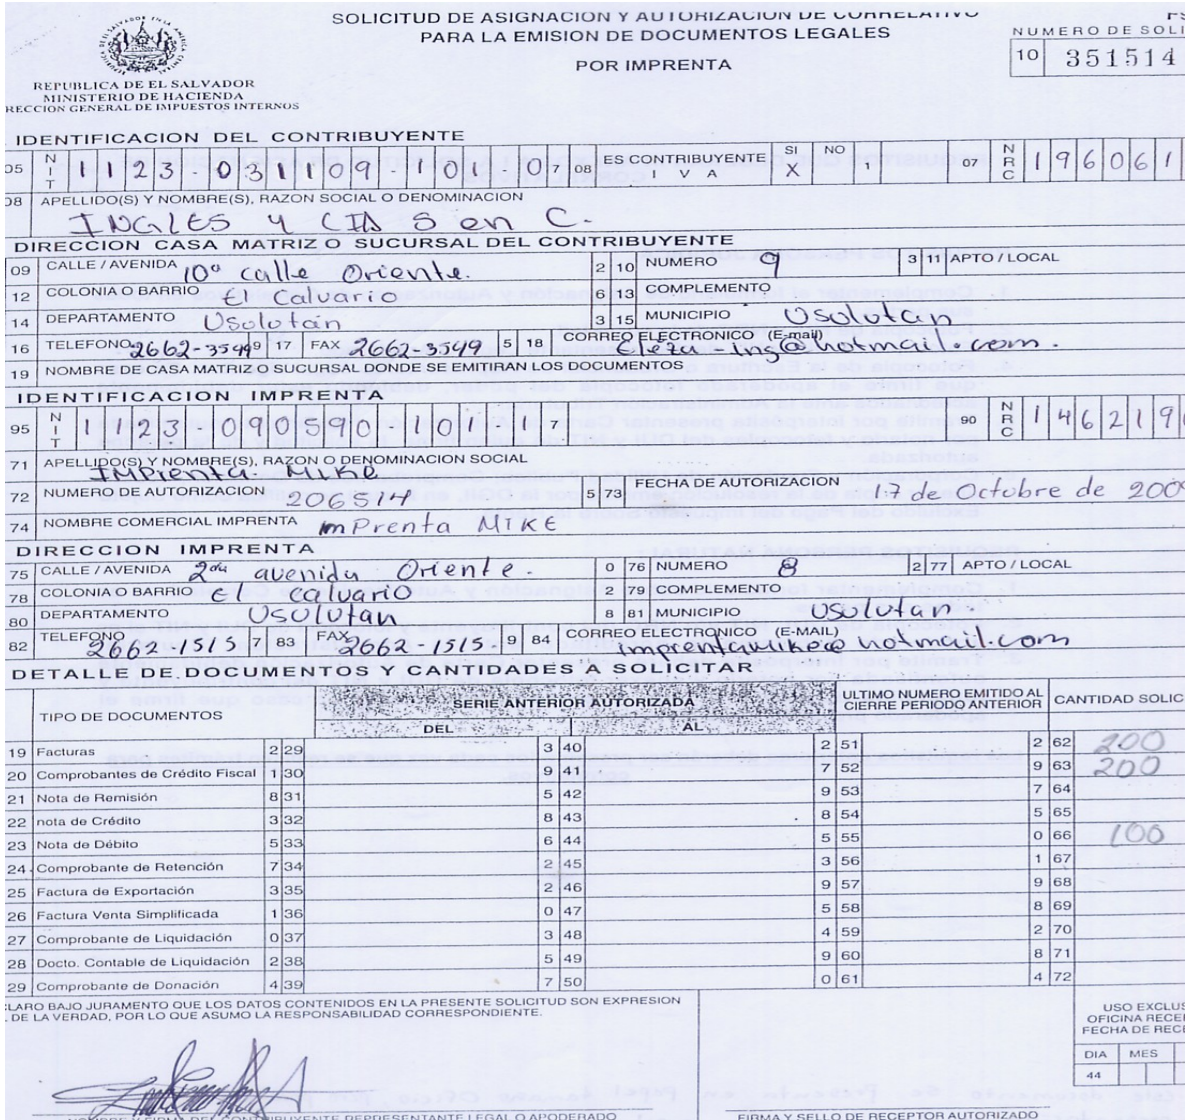 SOLICITUD DE ASIGNACION Y AUTORIZACION DE CORRELATIVO
PARA LA EMISION DE DOCUMENTOS LEGALES
POR IMPRENTA
NUMERO DE SOLI
10 351514
REPUBLICA DE EL SALVADOR
MINISTERIO DE HACIENDA
RECCION GENERAL DE IMPUESTOS INTERNOS
IDENTIFICACION DEL CONTRIBUYENTE
05 NIT 1123-031109-101 0 7 08 ES CONTRIBUYENTE IVA SI X NO 1 07 NRC 196061
08 APELLIDO(S) Y NOMBRE(S), RAZON SOCIAL O DENOMINACION
INGLES Y CIA S en C.
DIRECCION CASA MATRIZ O SUCURSAL DEL CONTRIBUYENTE
09 CALLE / AVENIDA 10ª calle Oriente. 2 10 NUMERO 9 3 11 APTO / LOCAL
12 COLONIA O BARRIO El Calvario 6 13 COMPLEMENTO
14 DEPARTAMENTO Usulután 3 15 MUNICIPIO Usulután
16 TELEFONO 2662-3549 9 17 FAX 2662-3549 5 18 CORREO ELECTRONICO (E-mail)
19 NOMBRE DE CASA MATRIZ O SUCURSAL DONDE SE EMITIRAN LOS DOCUMENTOS
IDENTIFICACION IMPRENTA
95 NIT 1123 090590 101 1 7 90 NRC 146219
71 APELLIDO(S) Y NOMBRE(S), RAZON O DENOMINACION SOCIAL
IMPrenta Mike
72 NUMERO DE AUTORIZACION 206514 5 73 FECHA DE AUTORIZACION 17 de Octubre de 2009
74 NOMBRE COMERCIAL IMPRENTA imPrenta MIKE
DIRECCION IMPRENTA
75 CALLE / AVENIDA 2da avenida Oriente. 0 76 NUMERO 8 2 77 APTO / LOCAL
78 COLONIA O BARRIO El calvario 2 79 COMPLEMENTO
80 DEPARTAMENTO Usulutan 8 81 MUNICIPIO Usulutan.
82 TELEFONO 2662-1515 7 83 FAX 2662-1515. 9 84 CORREO ELECTRONICO (E-MAIL) imprentamike@hotmail.com
DETALLE DE DOCUMENTOS Y CANTIDADES A SOLICITAR
TIPO DE DOCUMENTOS SERIE ANTERIOR AUTORIZADA ULTIMO NUMERO EMITIDO AL CIERRE PERIODO ANTERIOR CANTIDAD SOLIC
DEL AL
19 Facturas 2 29 3 40 2 51 2 62 200
20 Comprobantes de Crédito Fiscal 1 30 9 41 7 52 9 63 200
21 Nota de Remisión 8 31 5 42 9 53 7 64
22 nota de Crédito 3 32 8 43 8 54 5 65
23 Nota de Débito 5 33 6 44 5 55 0 66 100
24 Comprobante de Retención 7 34 2 45 3 56 1 67
25 Factura de Exportación 3 35 2 46 9 57 9 68
26 Factura Venta Simplificada 1 36 0 47 5 58 8 69
27 Comprobante de Liquidación 0 37 3 48 4 59 2 70
28 Docto. Contable de Liquidación 2 38 5 49 9 60 8 71
29 Comprobante de Donación 4 39 7 50 0 61 4 72
CLARO BAJO JURAMENTO QUE LOS DATOS CONTENIDOS EN LA PRESENTE SOLICITUD SON EXPRESION
DE LA VERDAD, POR LO QUE ASUMO LA RESPONSABILIDAD CORRESPONDIENTE.
USO EXCLUS
OFICINA RECE
FECHA DE RECE
DIA MES
44
NOMBRE Y FIRMA DEL CONTRIBUYENTE REPRESENTANTE LEGAL O APODERADO
FIRMA Y SELLO DE RECEPTOR AUTORIZADO